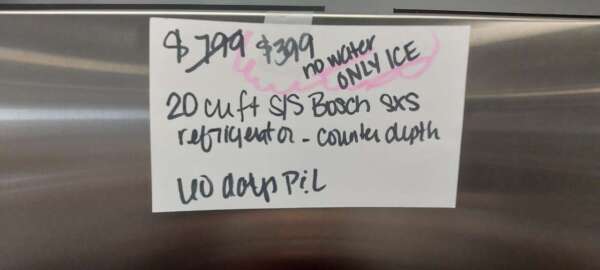 $799 $399 no water
ONLY ICE
20 cu ft S/S Bosch SXS
refrigerator - counter depth